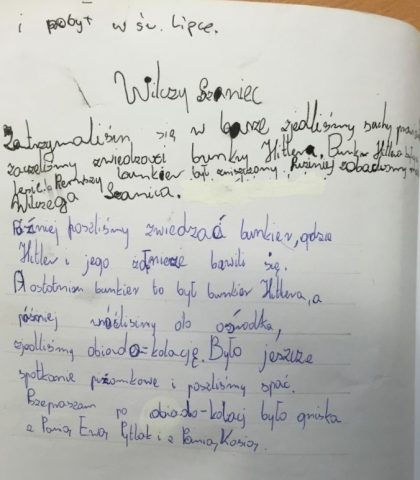 i pobyt w św. Lipce.
Wilczy Szaniec
Zatrzymaliśm się w barze zjedliśmy suchy
zaczeliśmy zwiedzać bunkry Hitlera. Bunkier Hitlera
Pierwszy bunkier był zniszczony. Puźniej zobaczymy
Wilczego Szańca.
Później poszliśmy zwiedzać bunkier, gdzie
Hitler i jego żołnieże bawili się.
A ostatnim bunkier to był bunkier Hitlera, a
później wróśliśmy do ośrodka,
zjedliśmy obiado=kolację. Było jeszcze
spotkanie piżamkowe i poszliśmy spać.
Przepraszam po obiado-kolacj było gniska
z Panią Ewą Pytlak i z Panią Kasią.